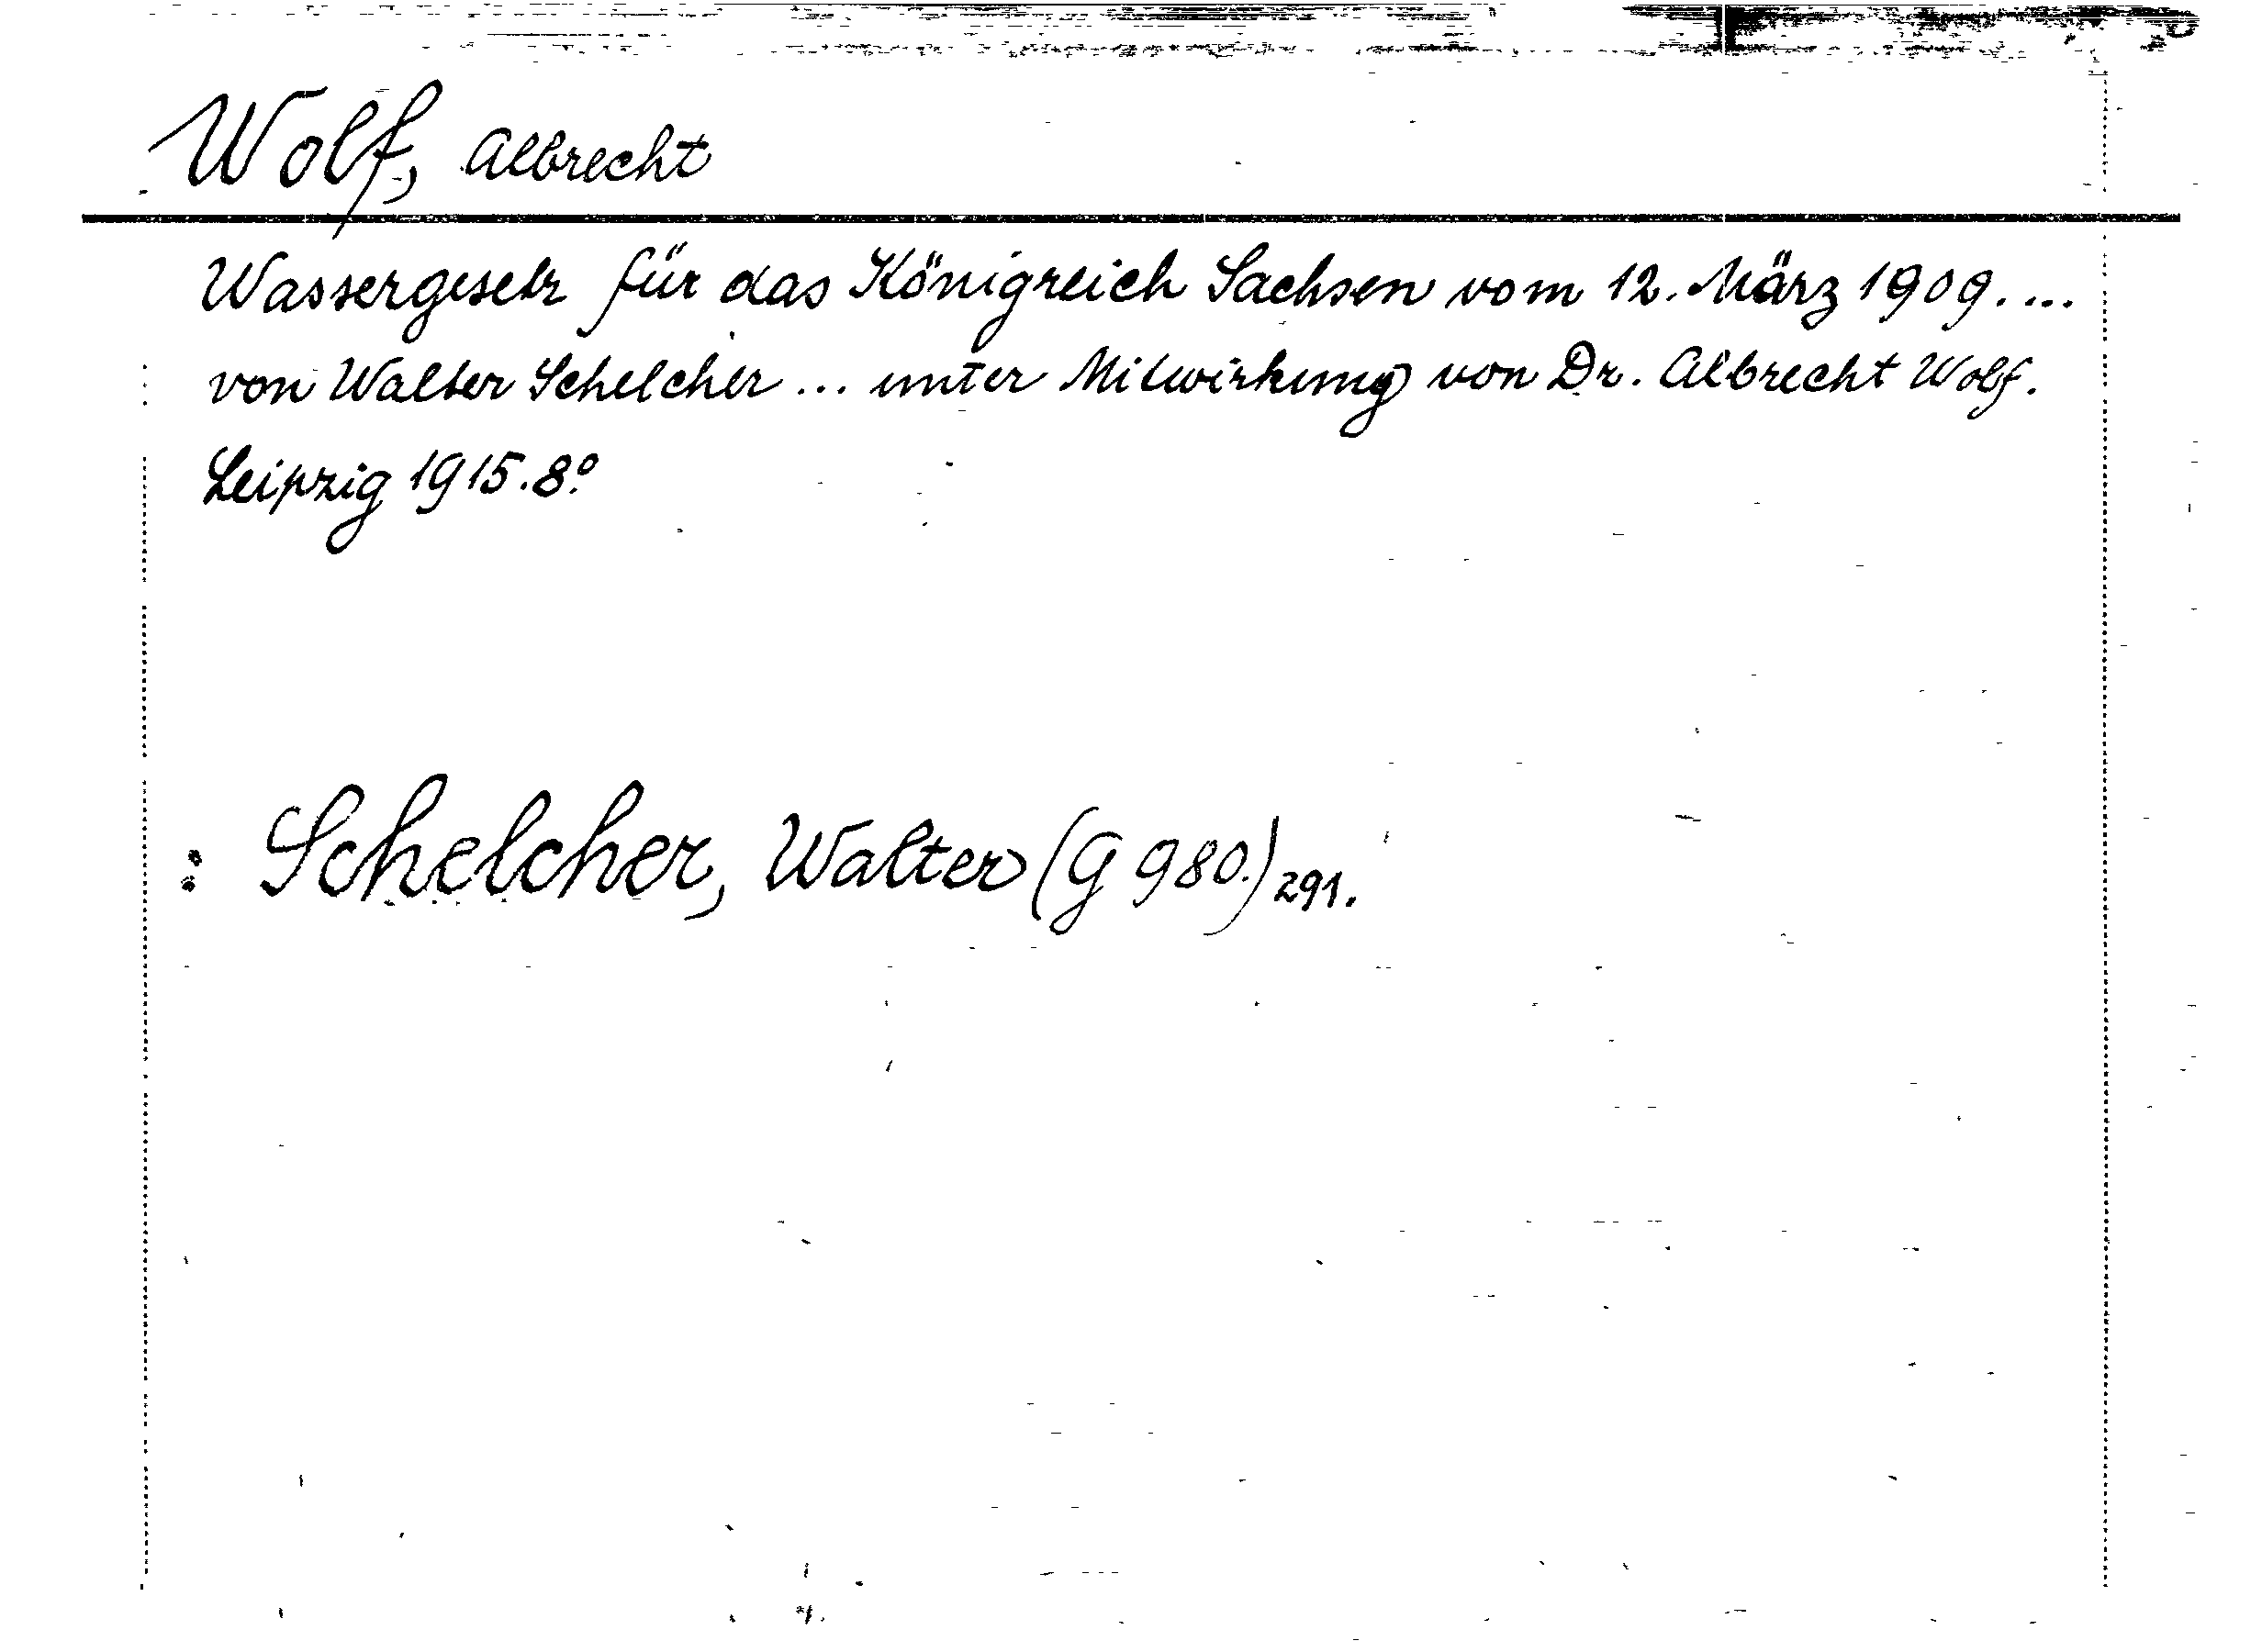 Wolf, Albrecht
Wassergesetz für das Königreich Sachsen vom 12. März 1909. ...
von Walter Schelcher ... unter Mitwirkung von Dr. Albrecht Wolf.
Leipzig 1915. 8°
: Schelcher, Walter (G 980.) 291.